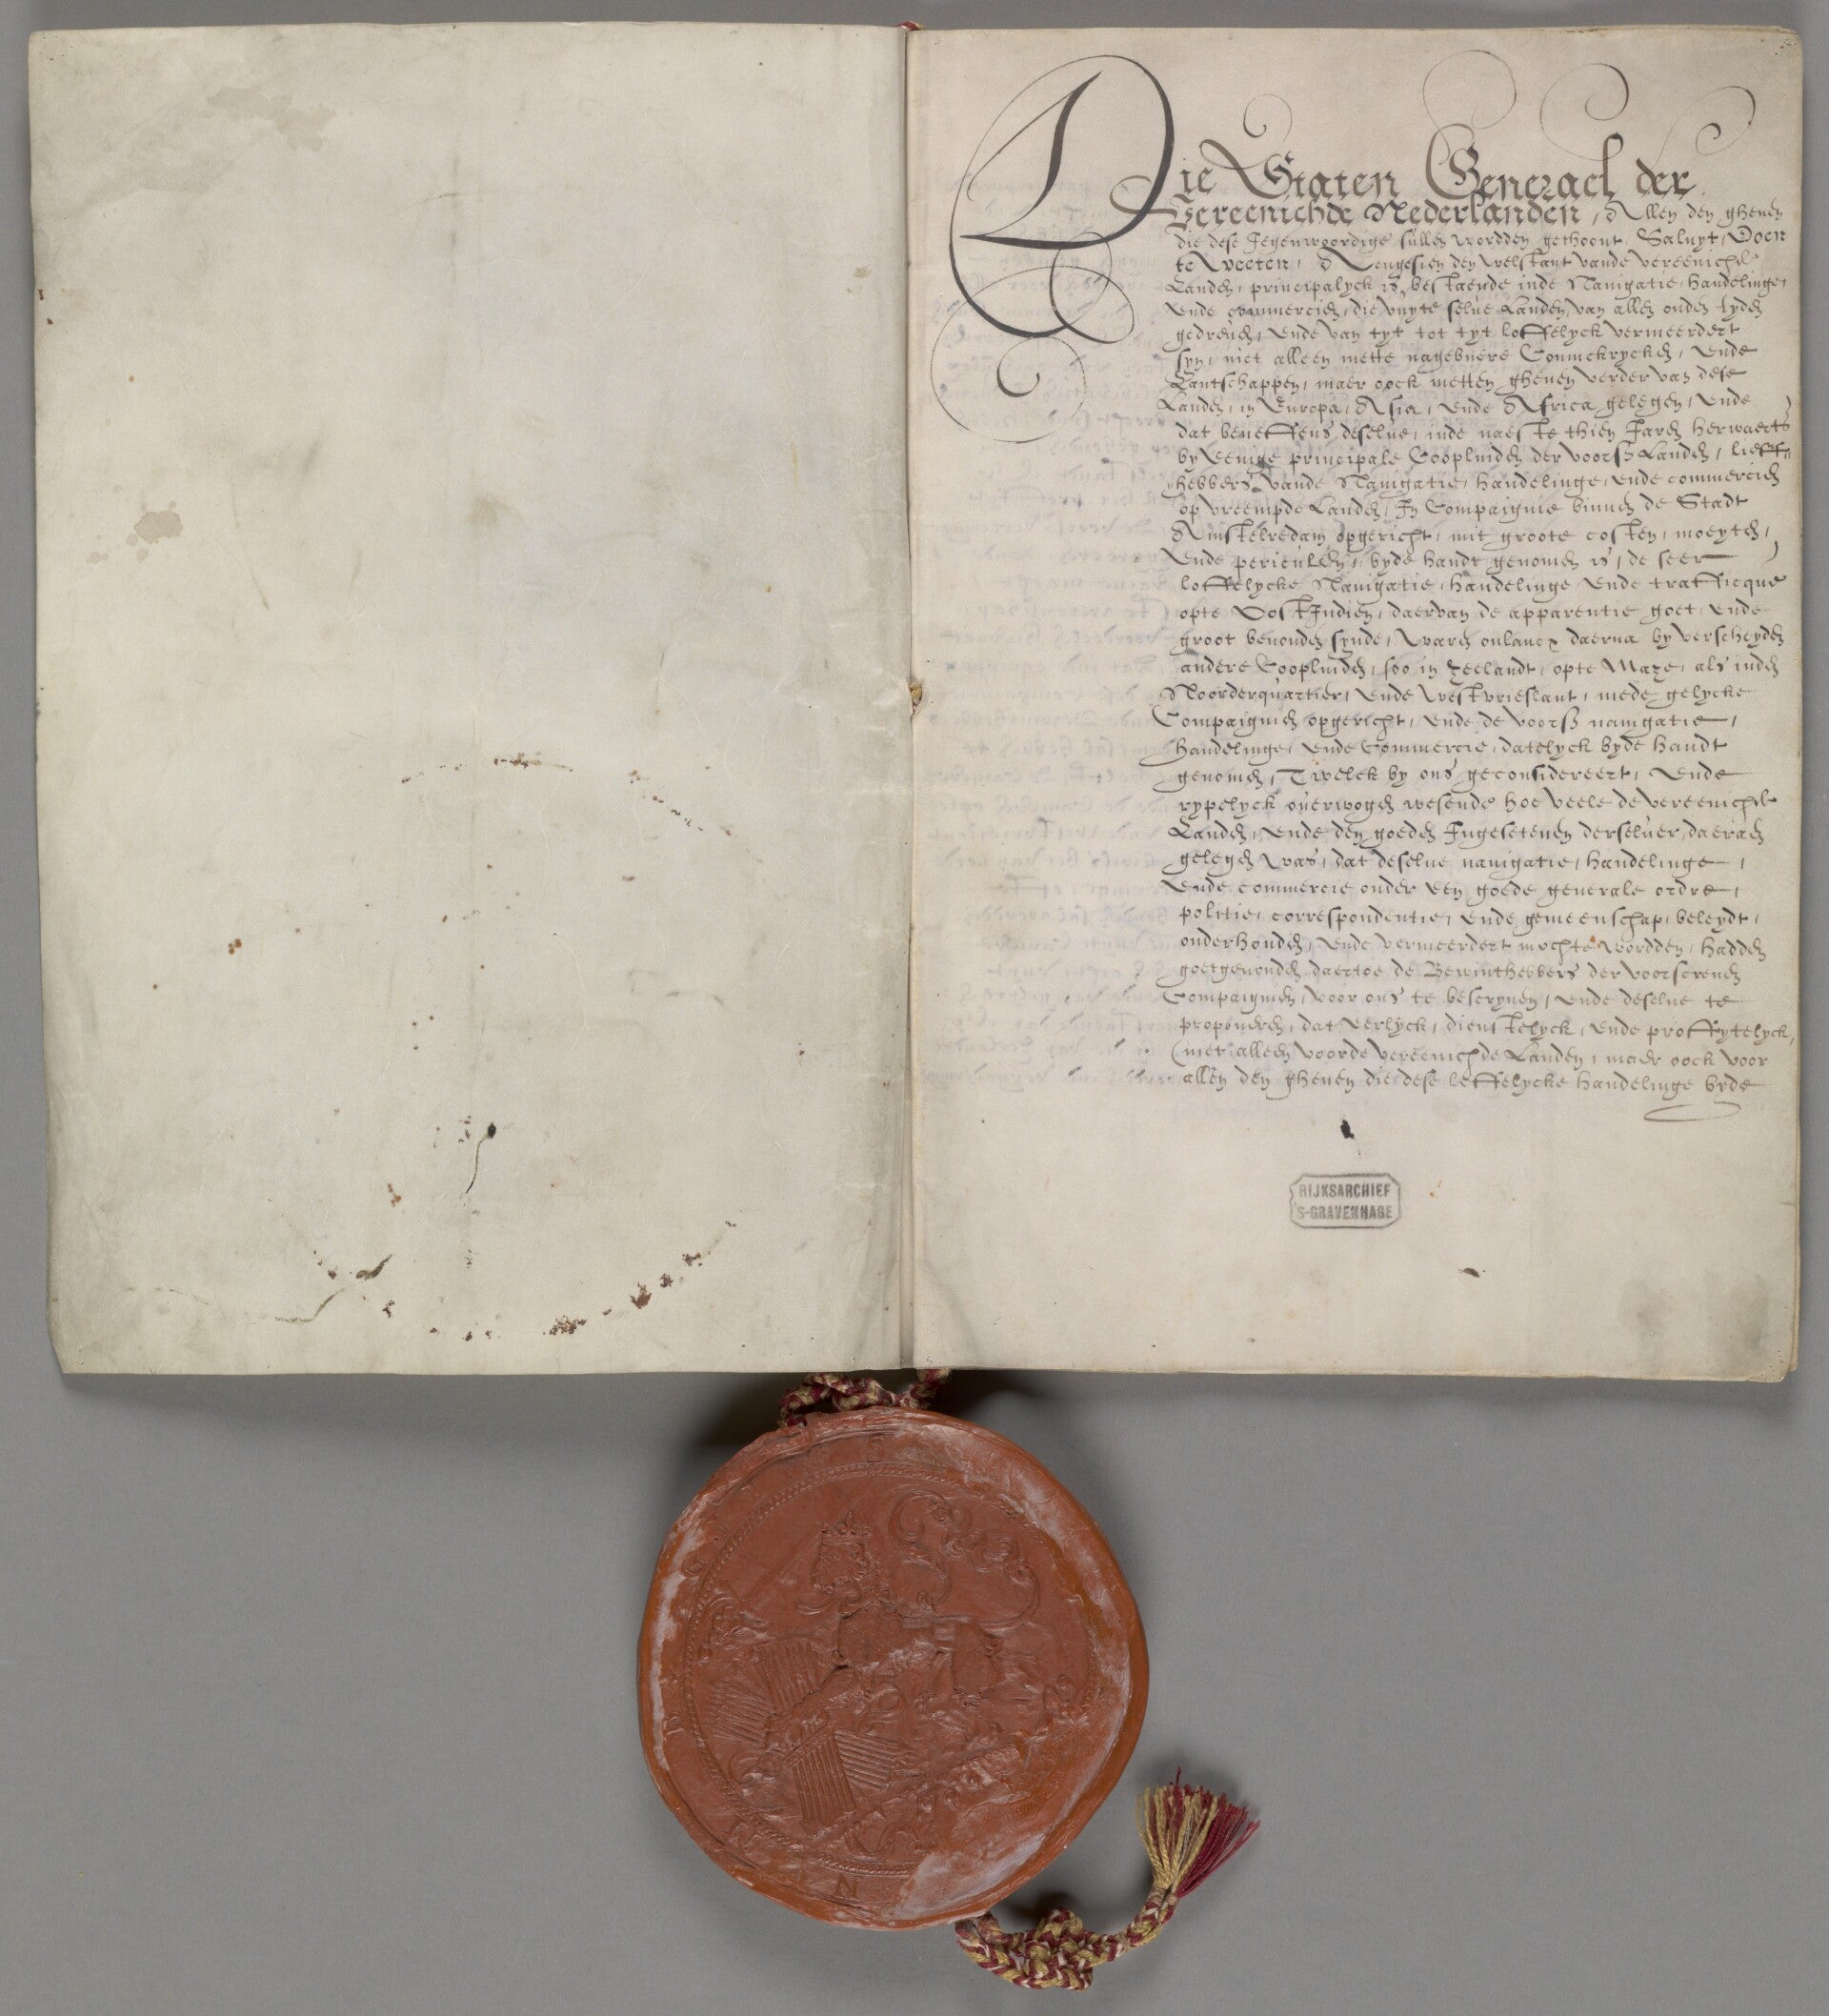 Die Staten Generael der
Vereenichde Nederlanden, Allen den ghenen
die dese Jegenwoordige sullen wordden gethoont, Saluyt, Doen
te Weeten, Alsoo aengesien den welstant vande Vereenichde
Landen, principalyck is bestaende inde Navigatie, handelinge,
ende commercien, die vuyte selve Landen, van allen ouden tyden
gedreven, ende van tyt tot tyt loffelyck vermeerdert
syn, niet alleen mette nagebuere Coninckrycken, ende
Lantschappen, maer oock metten ghenen verder van dese
Landen, in Europa, Asia, ende Africa gelegen, ende
dat beneffens deselve, inde naeste thien Jaren herwaerts
by eenige principale Coopluiden der voorsz Landen, lieff-
hebbers vande Navigatie, handelinge, ende commercien
op vreempde Landen, In Compaignie binnen de Stadt
Amstelredam opgericht, mit groote costen, moeyten,
ende periculen, byde handt genomen is, de seer
loffelycke Navigatie, handelinge ende trafficque
opte OostIndien, daervan de apparentie goet ende
groot bevonden synde, waren onlancx daerna by verscheyden
andere Coopluiden, soo in Zeelandt, opte Maze, als inden
Noorderquartier, ende westvrieslant, mede gelycke
Compaignien opgericht, ende de voorsz navigatie,
handelinge, ende Commercie, datelyck byde handt
genomen, Twelck by ons geconsidereert, ende
rypelyck overwogen wesende hoe veele de vereenichde
Landen, ende den goeden Ingesetenen derselver, daeraen
gelegen was, dat deselve navigatie, handelinge,
ende commercie onder een goede generale ordre,
politie, correspondentie, ende gemeenschap, beleydt,
onderhouden, ende vermeerdert mochte wordden, hadden
goetgevonden daertoe de Bewinthebbers der voorscreven
Compaignien, voor ons te bescryven, ende deselve te
proponeren, dat eerlyck, dienstelyck, ende proffytelyck,
(niet alleen voorde vereenichde Landen, maer oock voor
allen den ghenen die dese loffelycke handelinge byde
RIJKSARCHIEF
'S-GRAVENHAGE